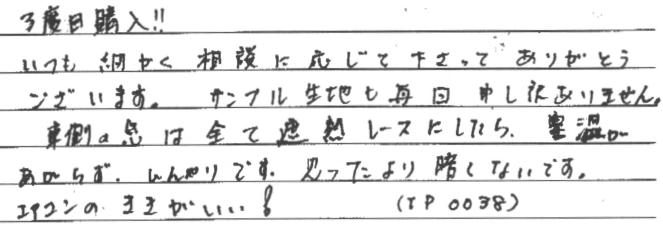 3度目購入!!
いつも 細かく 相談に 応じて 下さって ありがとう
ございます。 サンプル 生地も 毎回 申し訳ありません。
東側の窓は 全て 遮熱 レースにしたら、室温が
あがらず、ひんやりです。思ったより 暗くないです。
エアコンの ききがいい! (TP 0038)